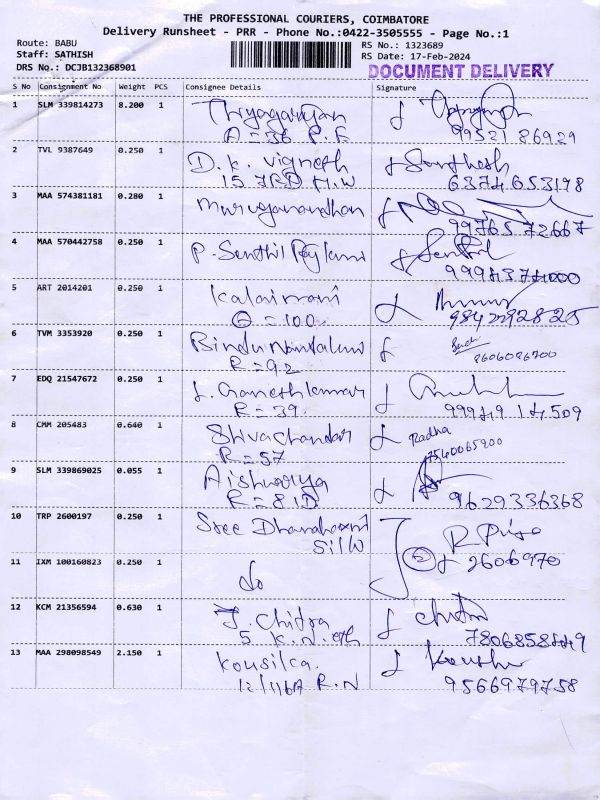 THE PROFESSIONAL COURIERS, COIMBATORE
Delivery Runsheet - PRR - Phone No.:0422-3505555 - Page No.:1
Route: BABU
Staff: SATHISH
DRS No.: DCJB132368901
RS No.: 1323689
RS Date: 17-Feb-2024
DOCUMENT DELIVERY
S No Consignment No Weight PCS Consignee Details Signature
1 SLM 339814273 8.200 1 Thyagarajan
99521 86929
2 TVL 9387649 0.250 1 D.K. Vignesh Santhosh
15 6374653198
3 MAA 574381181 0.280 1 Muruganandhan
9976572667
4 MAA 570442758 0.250 1 P. Senthil
5 ART 2014201 0.250 1 Kalaimani
= 100
6 TVM 3353920 0.250 1 Bindu
R = 92 9606086700
7 EDQ 21547672 0.250 1 Ganeshkumar
R = 39
8 CMM 205483 0.640 1 Shivachander Radha
R = 57 7540065900
9 SLM 339869025 0.055 1 Aishwarya
R = 81D 9629336368
10 TRP 2600197 0.250 1 Sree
11 IXM 100160823 0.250 1 do 2606970
12 KCM 21356594 0.630 1 J. Chitra Chitra
5 K.N.
13 MAA 298098549 2.150 1 Kousilca.
12/116A R.N 9566979758